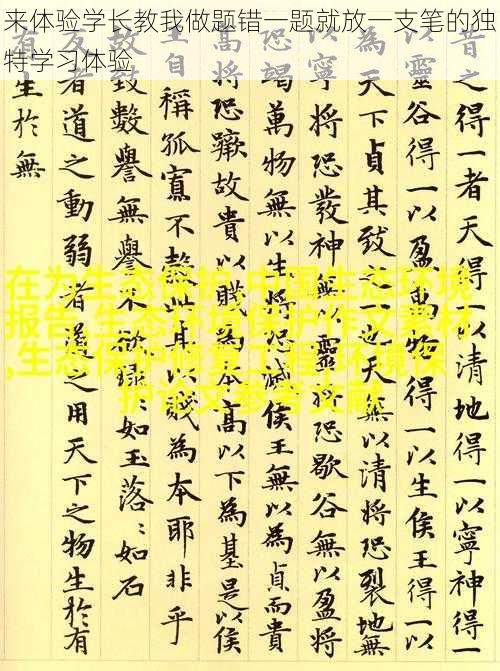 来体验学长教我做题错一题就放一支笔的独
特学习体验
昔之得一者天得一以清地得一以寧神得一
以靈谷得一以盈萬物得一以生侯王得一以
為天下貞其致之一也天無以清將恐裂地無
以寧將恐發神無以靈將恐歇谷無以盈將
竭萬物無以生將恐滅侯王無以為貞而貴
高將恐蹶故貴以賤為本高以下為基是以侯
王自稱孤寡不穀此其以賤為本耶非乎
故致數譽無譽不欲琭:如玉落:如石
者道之動弱者道之用天下之物生於有
有生於無
在为生态保护,中国生态环境
报告,生态环境保护作文素材
,生态保护修复工程,环境保
护论文参考文献